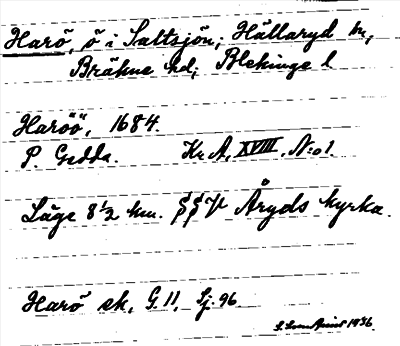 Harö, ö i Saltsjön; Hällaryd sn,
Bräkne hd; Blekinge l
Haröö, 1684.
P. Gedda. Kr. A, XVIII, N:o 1.
Läge 8 1/2 km. SSV Åryds kyrka.
Harö sk, G 11, Sj. 96
1936